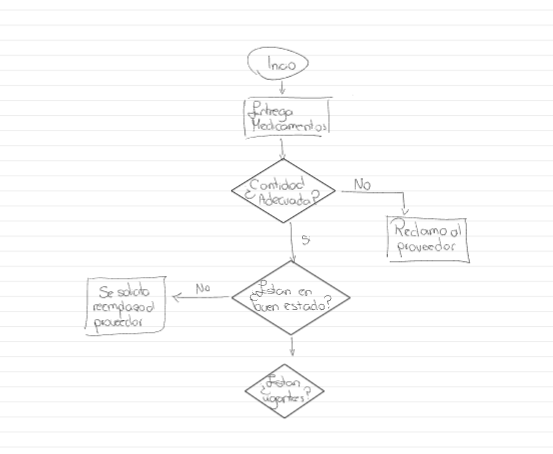 Inicio
Entrega
Medicamentos
¿Cantidad
Adecuada?
No
Reclamo al
proveedor
Si
¿Estan en
buen estado?
No
Se solicita
reemplazo al
proveedor
¿Estan
vigentes?